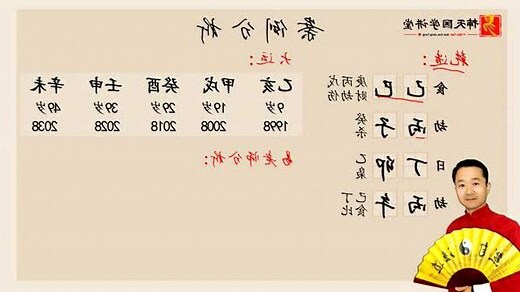 案例分析
天国学讲堂
乾造：
食 己 巳 戊丙庚
伤劫财
劫 丙 子 癸
杀
日 丁 卯 乙
枭
劫 丙 午 己丁
食比
大运：
乙亥 甲戌 癸酉 壬申 辛未
9岁 19岁 29岁 39岁 49岁
1998 2008 2018 2028 2038
易老师分析：